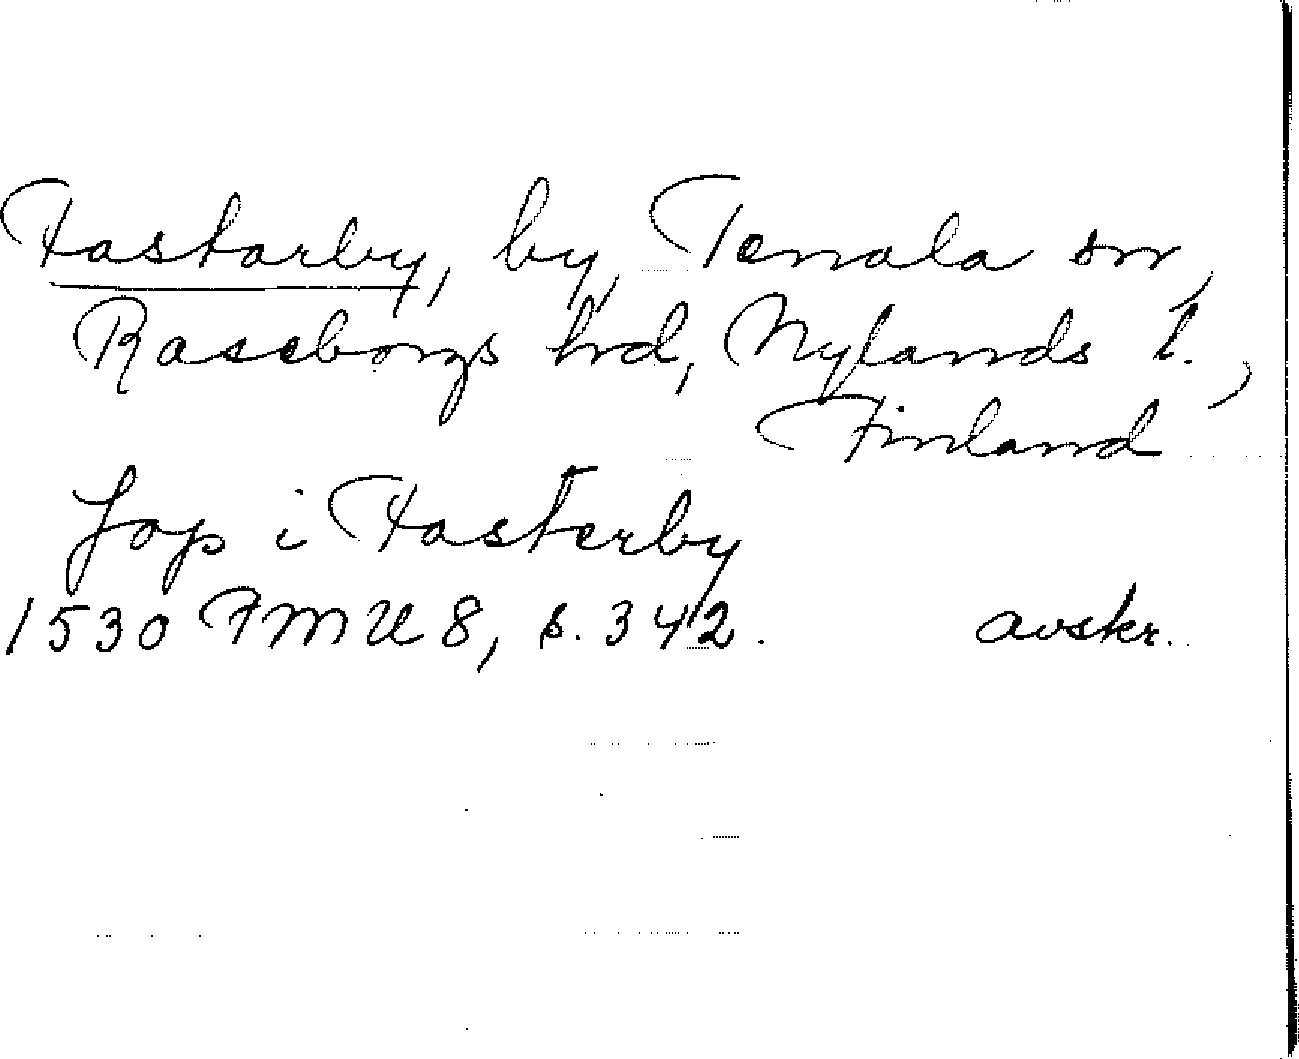 Fastarby, by, Tenala sn,
Raseborgs hrd, Nylands l.,
Finland
Jop i Fasterby
1530 FMU 8, s. 342. avskr.